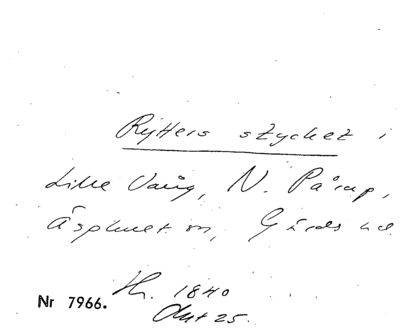 Ryttersstycket i
Lille Vång, N. Pårup,
Äsphult sn, Gärds hd
Nr 7966.
1840
Okt 25.